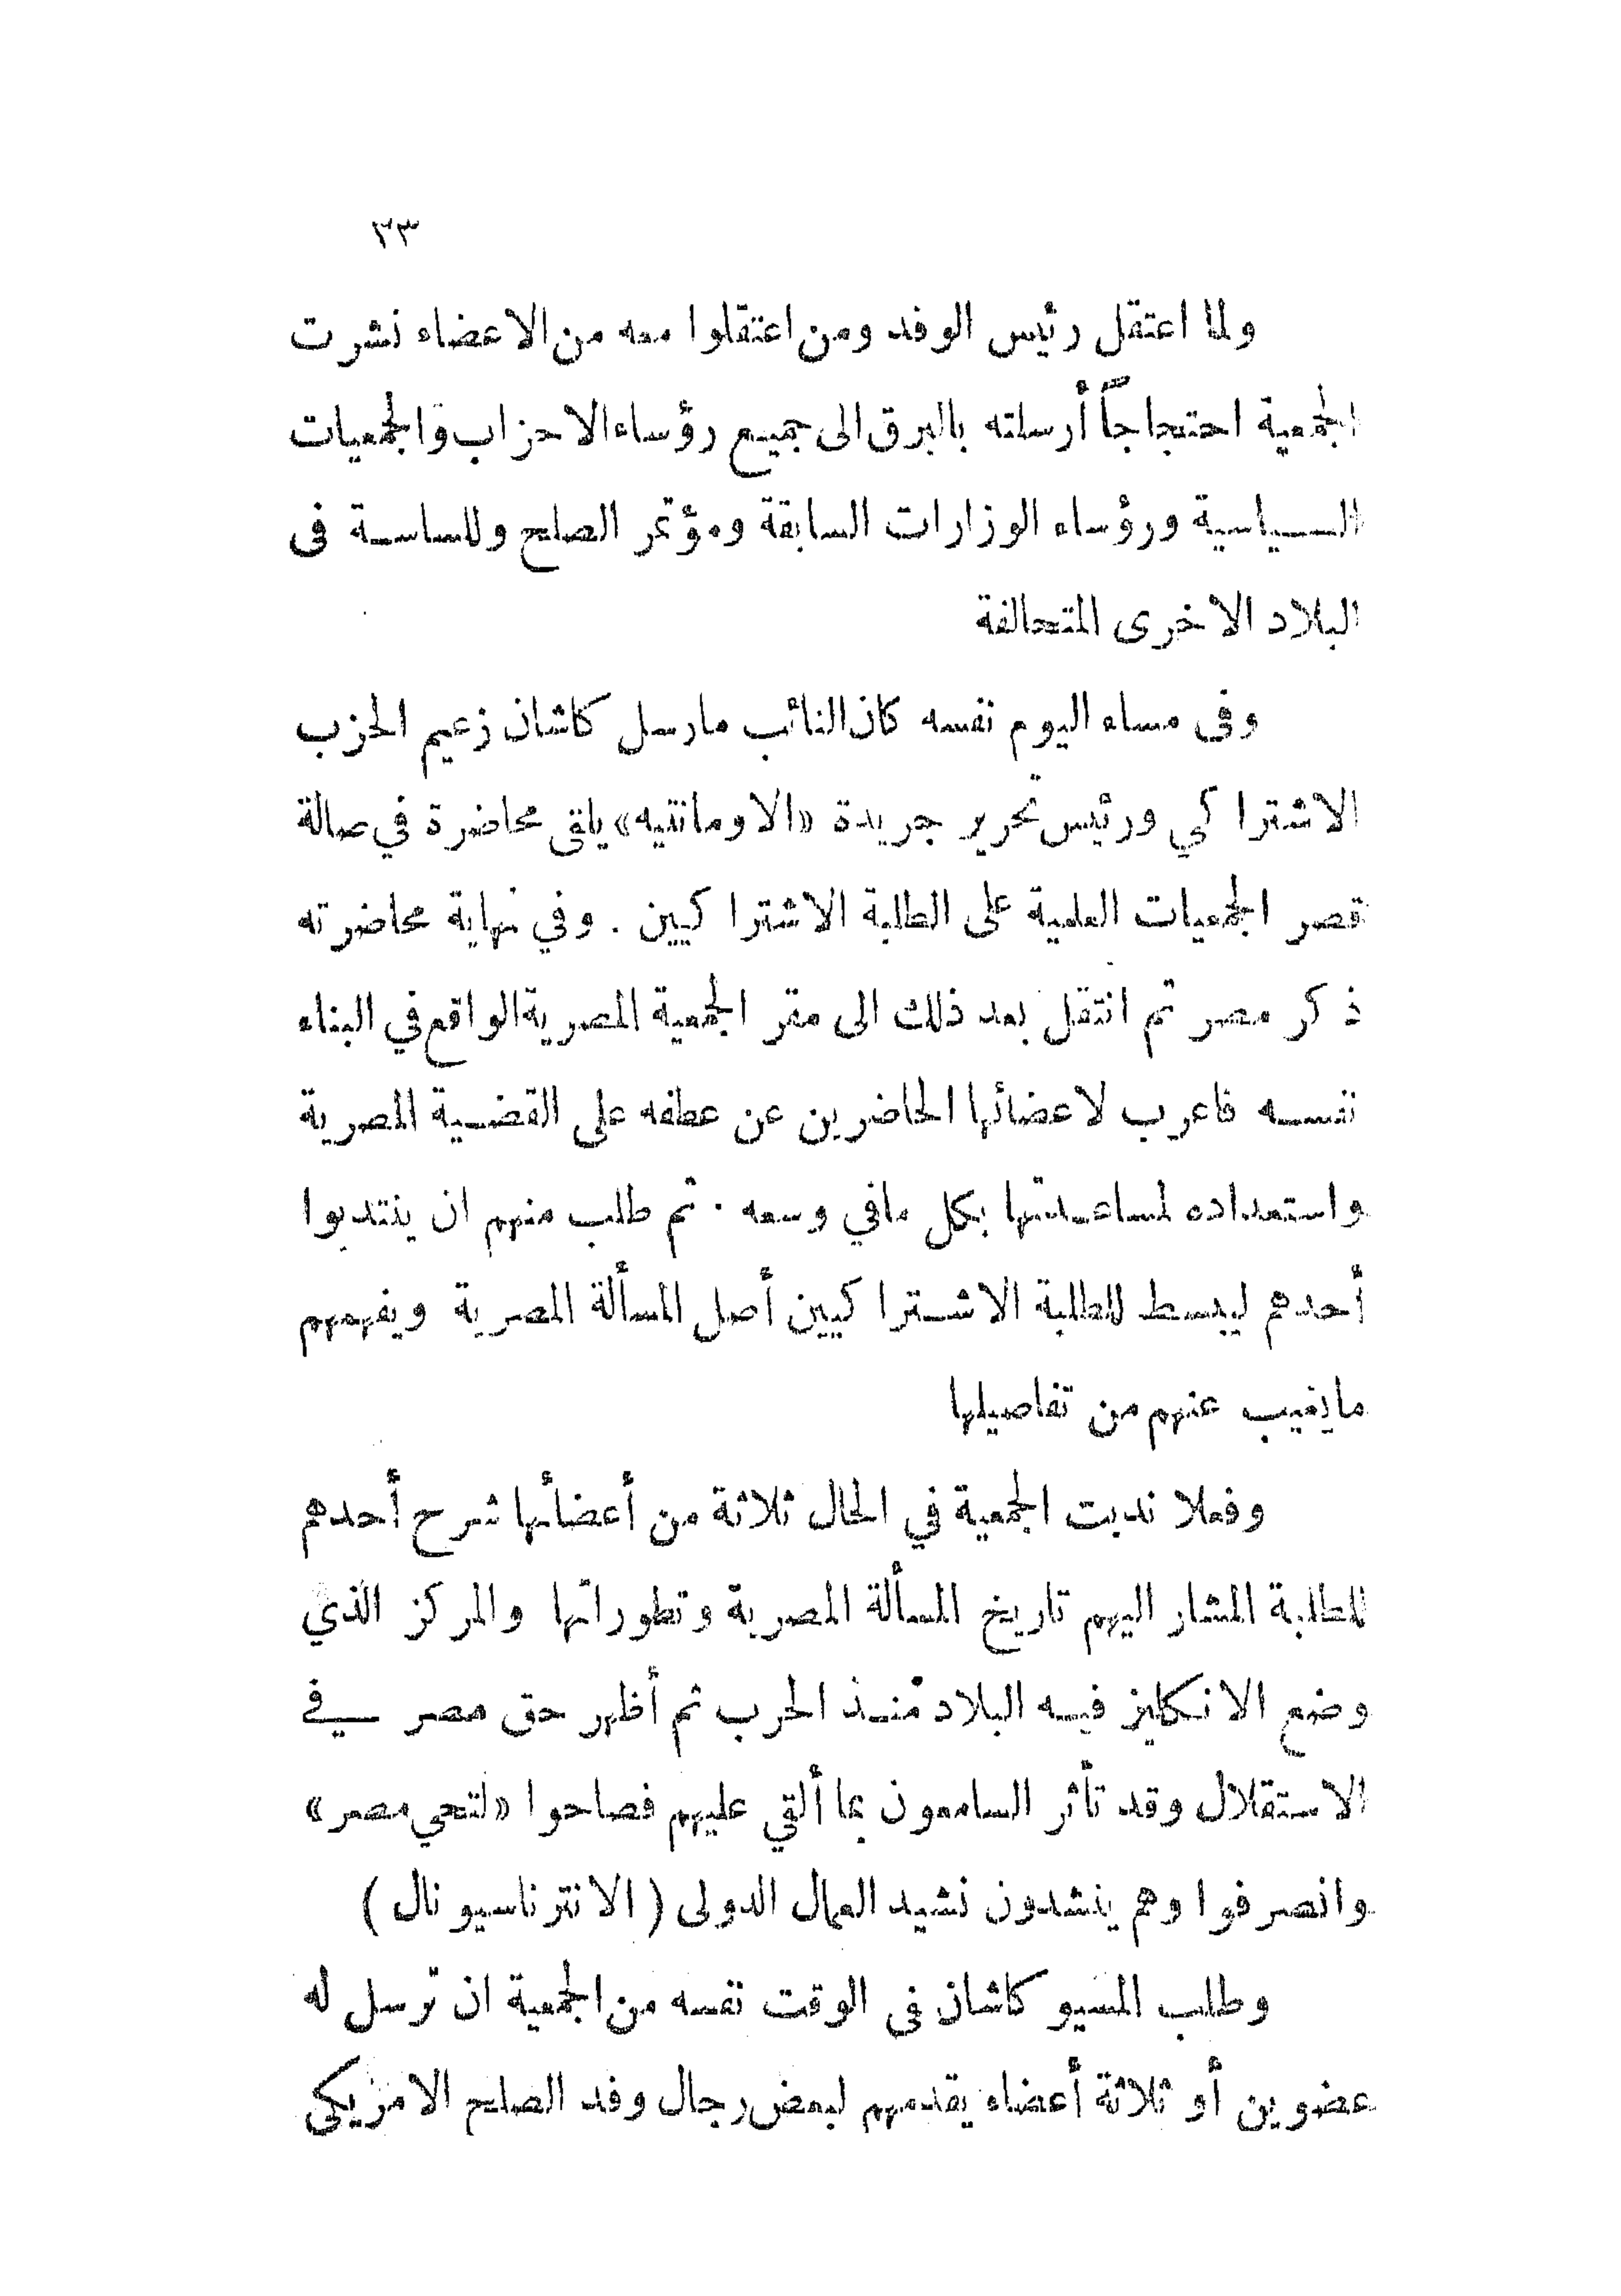 ٣٣
ولما اعتقل رئيس الوفد ومن اعتقلوا معه من الاعضاء نشرت
الجمعية احتجاجاً أرسلته بالبرق الى جميع رؤساء الاحزاب والجمعيات
السياسية ورؤساء الوزارات السابقة ومؤتمر الصلح وللساسة فى
البلاد الاخرى المتحالفة
وفى مساء اليوم نفسه كان النائب مارسل كاشان زعيم الحزب
الاشتراكي ورئيس تحرير جريدة «الاومانتيه» يلقى محاضرة في صالة
قصر الجمعيات العلمية على الطلبة الاشتراكيين . وفي نهاية محاضرته
ذكر مصر ثم انتقل بعد ذلك الى مقر الجمعية المصرية الواقع في البناء
نفسه فاعرب لاعضائها الحاضرين عن عطفه على القضية المصرية
واستعداده لمساعدتها بكل مافي وسعه . ثم طلب منهم ان ينتدبوا
أحدهم ليبسط للطلبة الاشتراكيين أصل المسألة المصرية ويفهمهم
مايغيب عنهم من تفاصيلها
وفعلا ندبت الجمعية في الحال ثلاثة من أعضائها شرح أحدهم
للطلبة المشار اليهم تاريخ المسألة المصرية وتطوراتها والمركز الذي
وضع الانكليز فيه البلاد منذ الحرب ثم أظهر حق مصر في
الاستقلال وقد تأثر السامعون بما ألقي عليهم فصاحوا «لتحي مصر»
وانصرفوا وهم ينشدون نشيد العمال الدولى ( الانترناسيونال )
وطلب المسيو كاشان فى الوقت نفسه من الجمعية ان ترسل له
عضوين أو ثلاثة أعضاء يقدمهم لبعض رجال وفد الصلح الامريكى